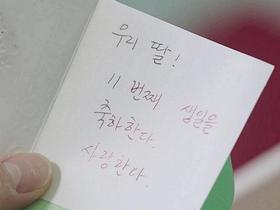 우리 딸!
11 번째 생일을
축하한다.
사랑한다.